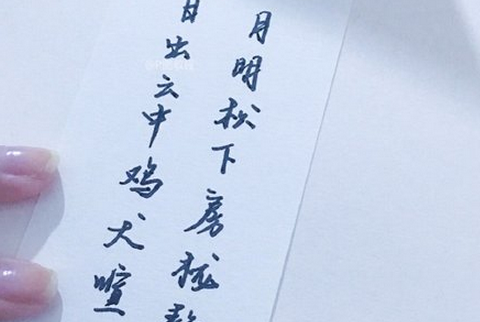 月明松下房栊
日出云中鸡犬喧